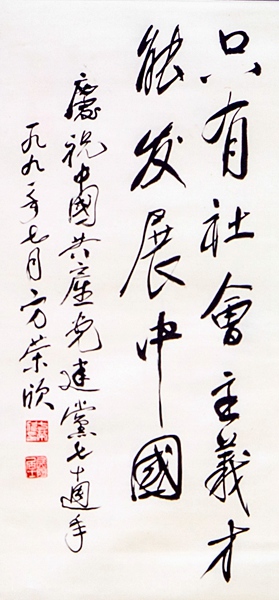 只有社會主義才
能发展中國
慶祝中國共産党建黨七十週年
一九九一年七月方荣欣